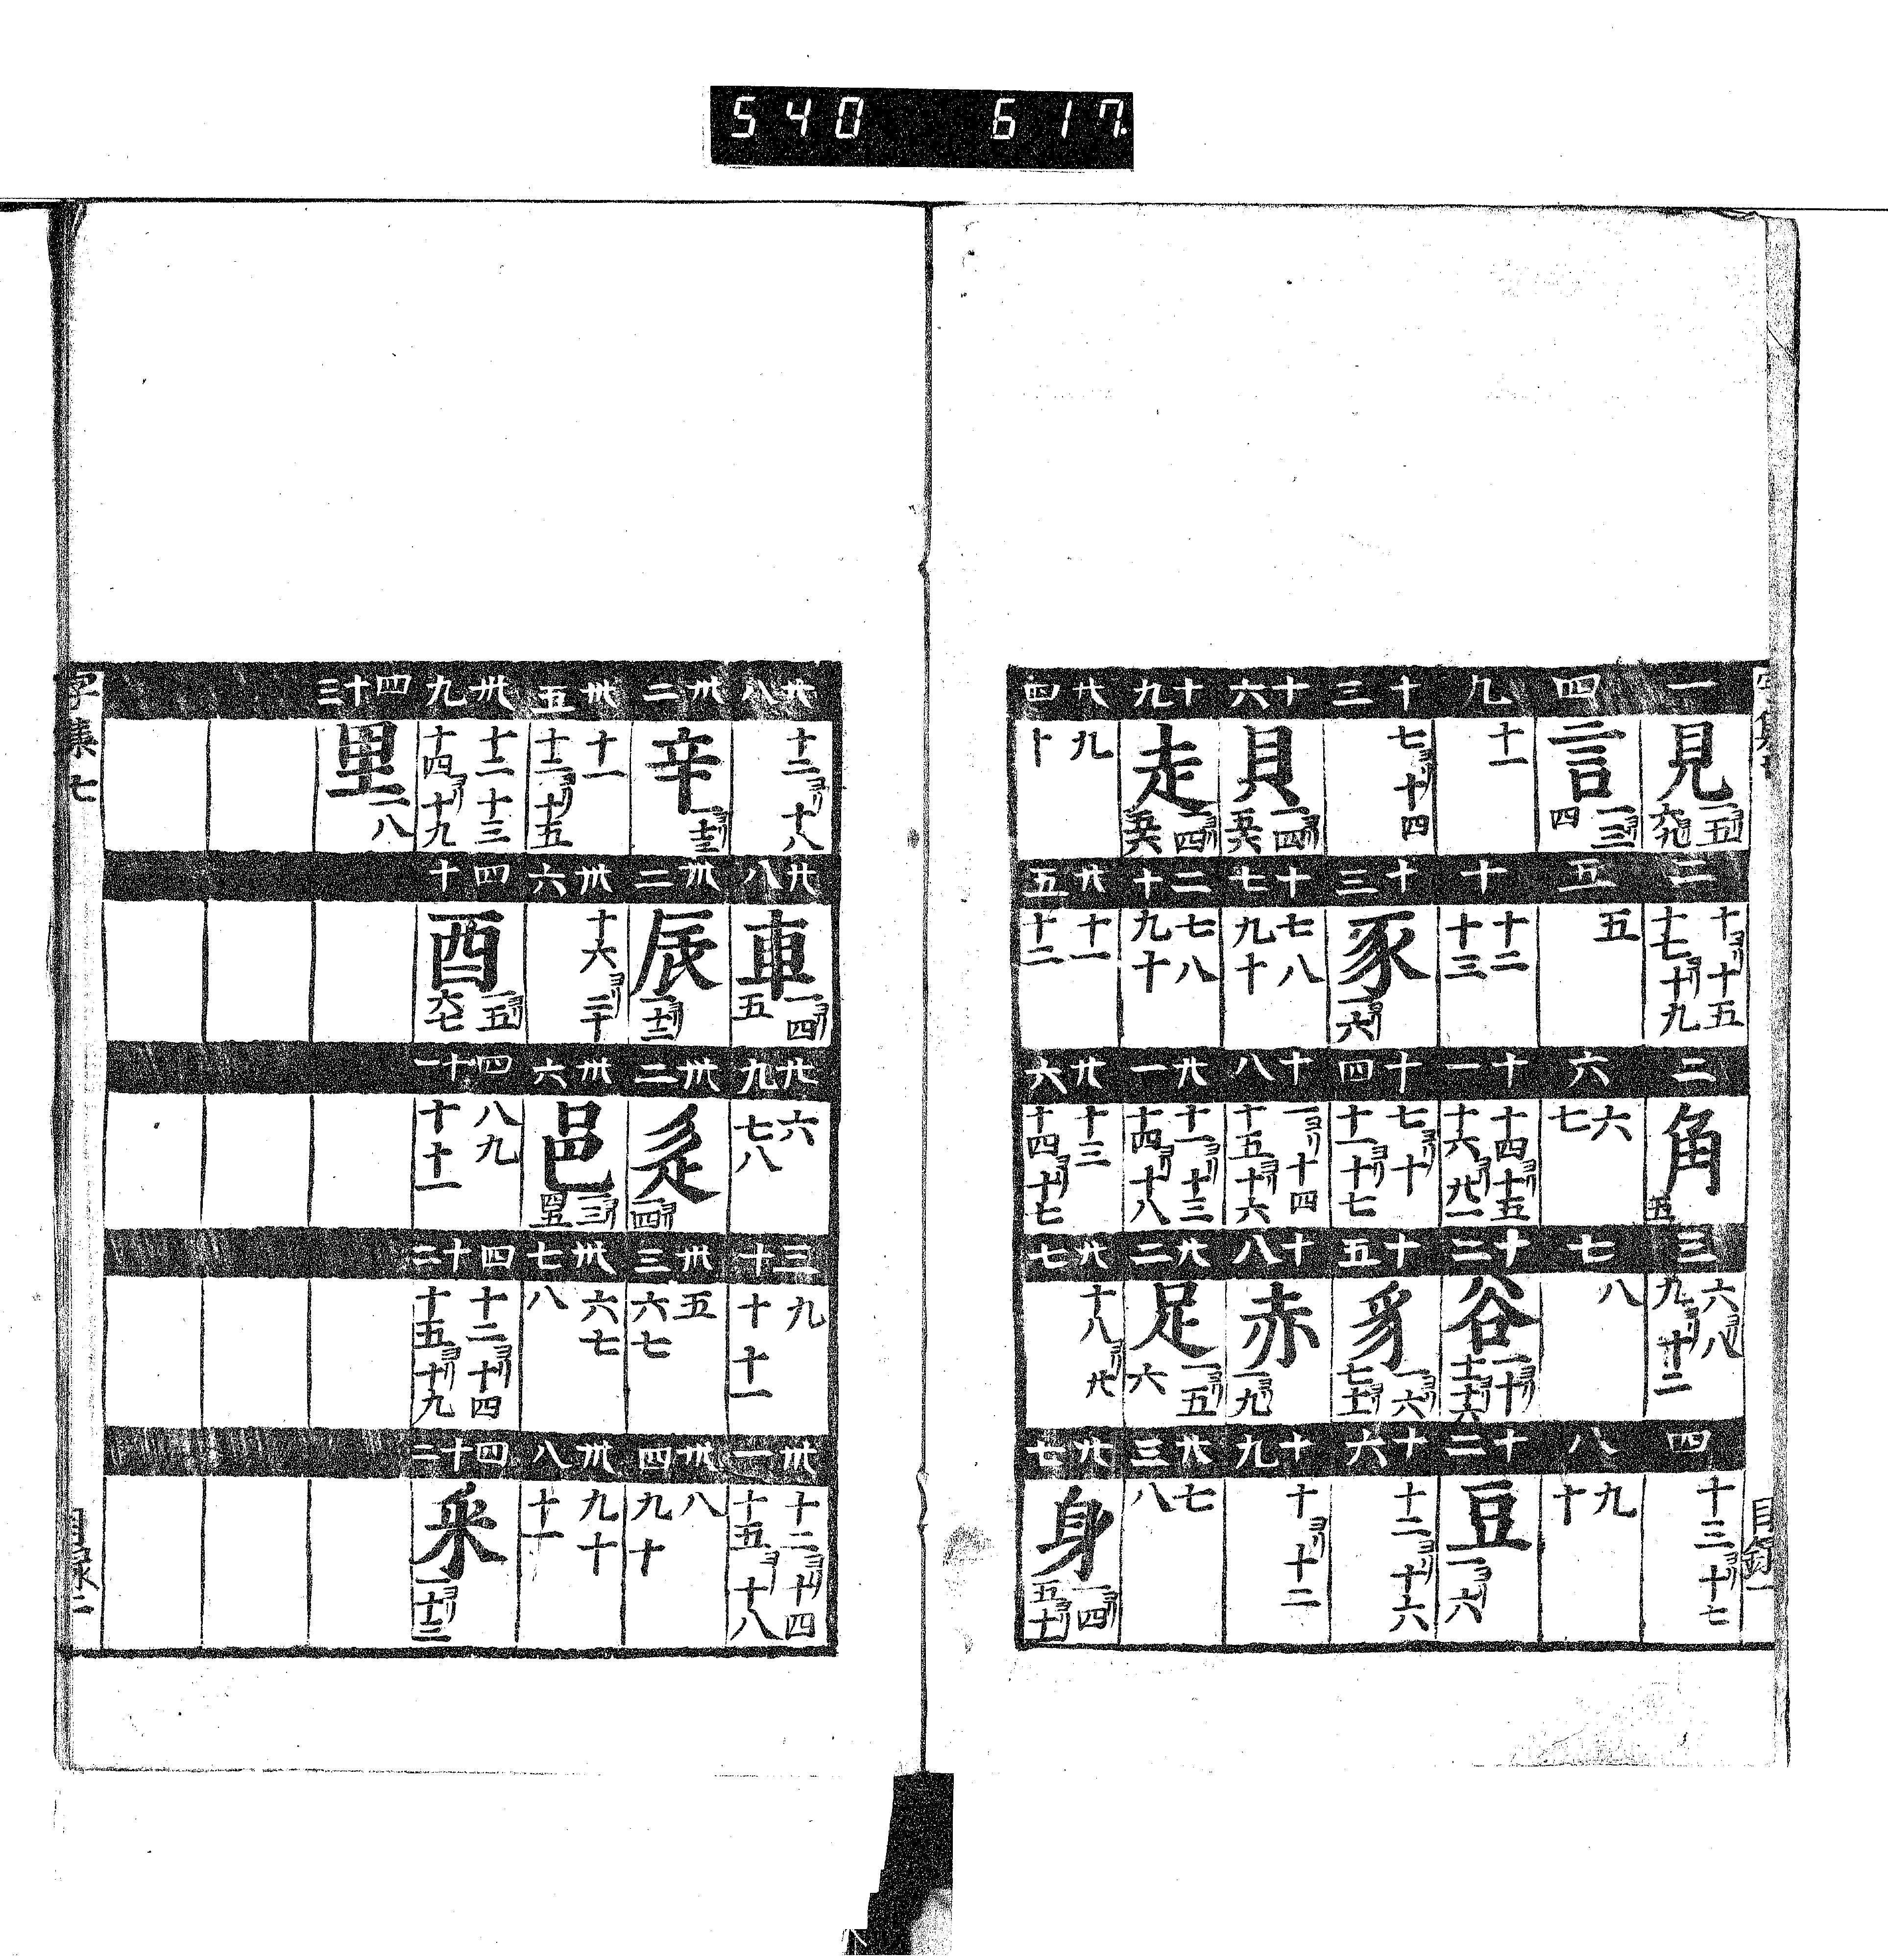 540 617
一
見
一ヨリ五
二
十ヨリ十五
十七ヨリ十九
二
角
五
三
六ヨリ八
九ヨリ十二
四
十三ヨリ十七
四
言
一ヨリ三
四
五
五
六
六
七
七
八
八
九
十
九
十一
十
十二
十三
十一
十四ヨリ十五
十六ヨリ廿一
十二
谷
一ヨリ十
十二
豆
一ヨリ六
十三
七ヨリ十四
十三
豕
一ヨリ六
十四
七ヨリ十
十一ヨリ十七
十五
豸
一ヨリ六
七ヨリ十一
十六
十二ヨリ十六
十六
貝
一ヨリ四
五六
十七
七八
九十
十八
一ヨリ十四
十五ヨリ十六
十八
赤
一ヨリ九
十九
十ヨリ十二
十九
走
一ヨリ四
五六
二十
七八
九十
廿一
十一ヨリ十三
十四ヨリ十八
廿二
足
一ヨリ五
六
廿三
七
八
廿四
九
十
廿五
十一
十二
廿六
十三
十四ヨリ十七
廿七
十八ヨリ廿
廿七
身
一ヨリ四
五ヨリ十
目錄一
廿八
十二ヨリ十八
廿八
車
一ヨリ四
五
廿九
六
七八
三十
九
十十一
卅一
十二ヨリ十四
十五ヨリ十八
卅二
辛
卅二
辰
一ヨリ十二
卅二
辵
一ヨリ四
卅三
五
六七
卅四
八
九十
卅五
十一
十二ヨリ十五
卅六
十六ヨリ二十
卅六
邑
一ヨリ三
四五
卅七
六七
八
卅八
九十
十一
卅九
十二十三
十四ヨリ十九
四十
酉
一ヨリ五
六七
四十一
八九
十十一
四十二
十二ヨリ十四
十五ヨリ十九
四十二
釆
一ヨリ十三
四十三
里
一八
字集七
目录二